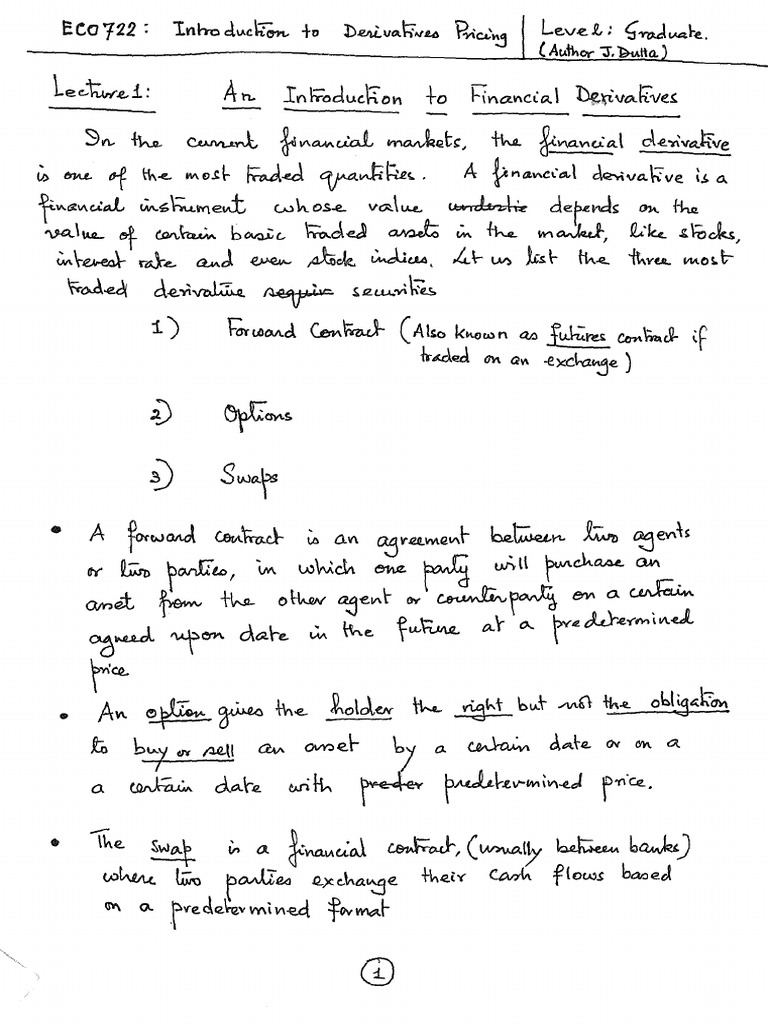 ECO722: Introduction to Derivatives Pricing | Level: Graduate.
(Author J. Dutta)
Lecture 1: An Introduction to Financial Derivatives
In the current financial markets, the financial derivative
is one of the most traded quantities. A financial derivative is a
financial instrument whose value depends on the
value of certain basic traded assets in the market, like stocks,
interest rate and even stock indices. Let us list the three most
traded derivative securities
1) Forward Contract (Also known as futures contract if
traded on an exchange)
2) Options
3) Swaps
• A forward contract is an agreement between two agents
or two parties, in which one party will purchase an
asset from the other agent or counterparty on a certain
agreed upon date in the future at a predetermined
price
• An option gives the holder the right but not the obligation
to buy or sell an asset by a certain date or on a
a certain date with preder predetermined price.
• The swap is a financial contract, (usually between banks)
where two parties exchange their cash flows based
on a predetermined format
1